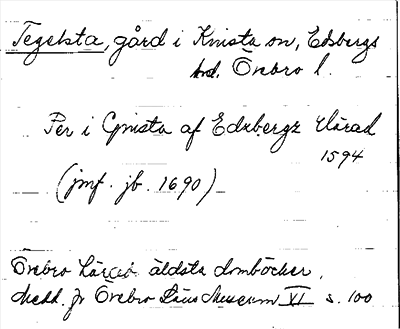 Tegelsta, gård i Knista sn, Edsbergs
hd, Örebro l.
Per i Gnista af Edzbergz Härad
1594
(jmf. jb. 1690)
Örebro läns äldsta domböcker,
Medd. fr Örebro Läns Museum XI s. 100